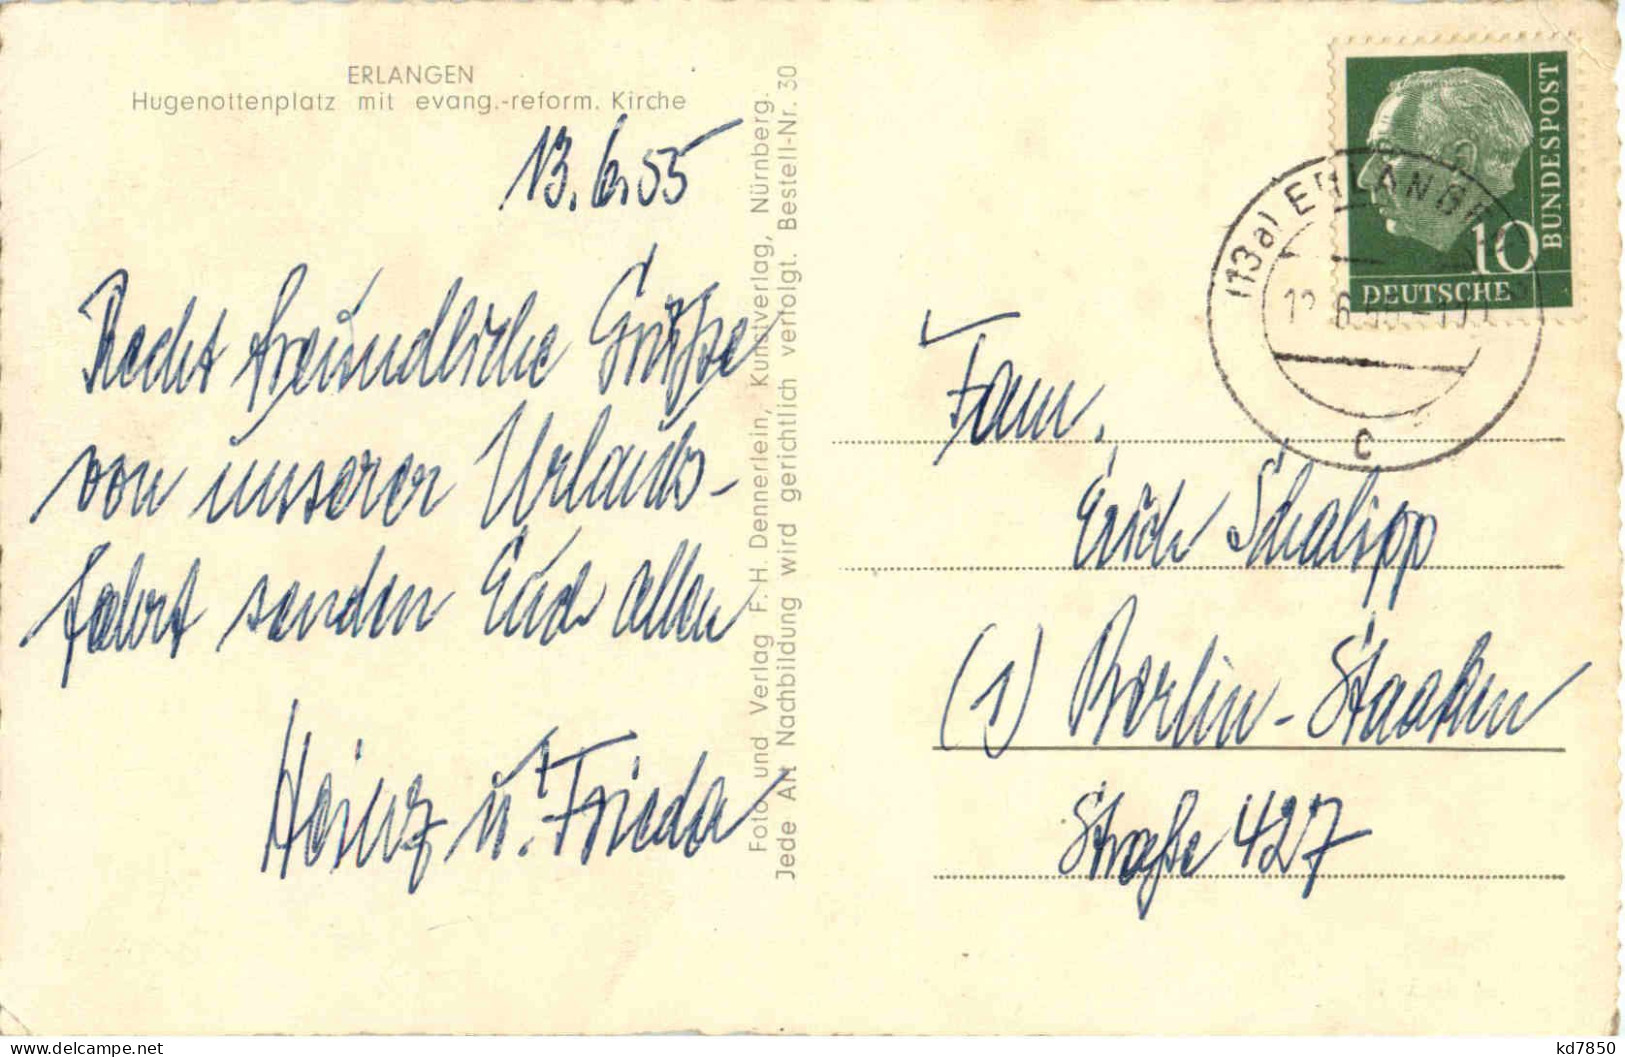 ERLANGEN
Hugenottenplatz mit evang.-reform. Kirche
13.6.55
Recht freundliche Grüße
von unserer Urlaubs-
fahrt senden Euch allen
Heinz u. Frieda
Foto und Verlag F. H. Dennerlein, Kunstverlag, Nürnberg.
Jede Art Nachbildung wird gerichtlich verfolgt. Bestell-Nr. 30
DEUTSCHE
BUNDESPOST
10
(13a) ERLANGEN
c
Fam.
Erich Schalipp
(1) Berlin-Staaken
Straße 427
delcampe.net
kd7850